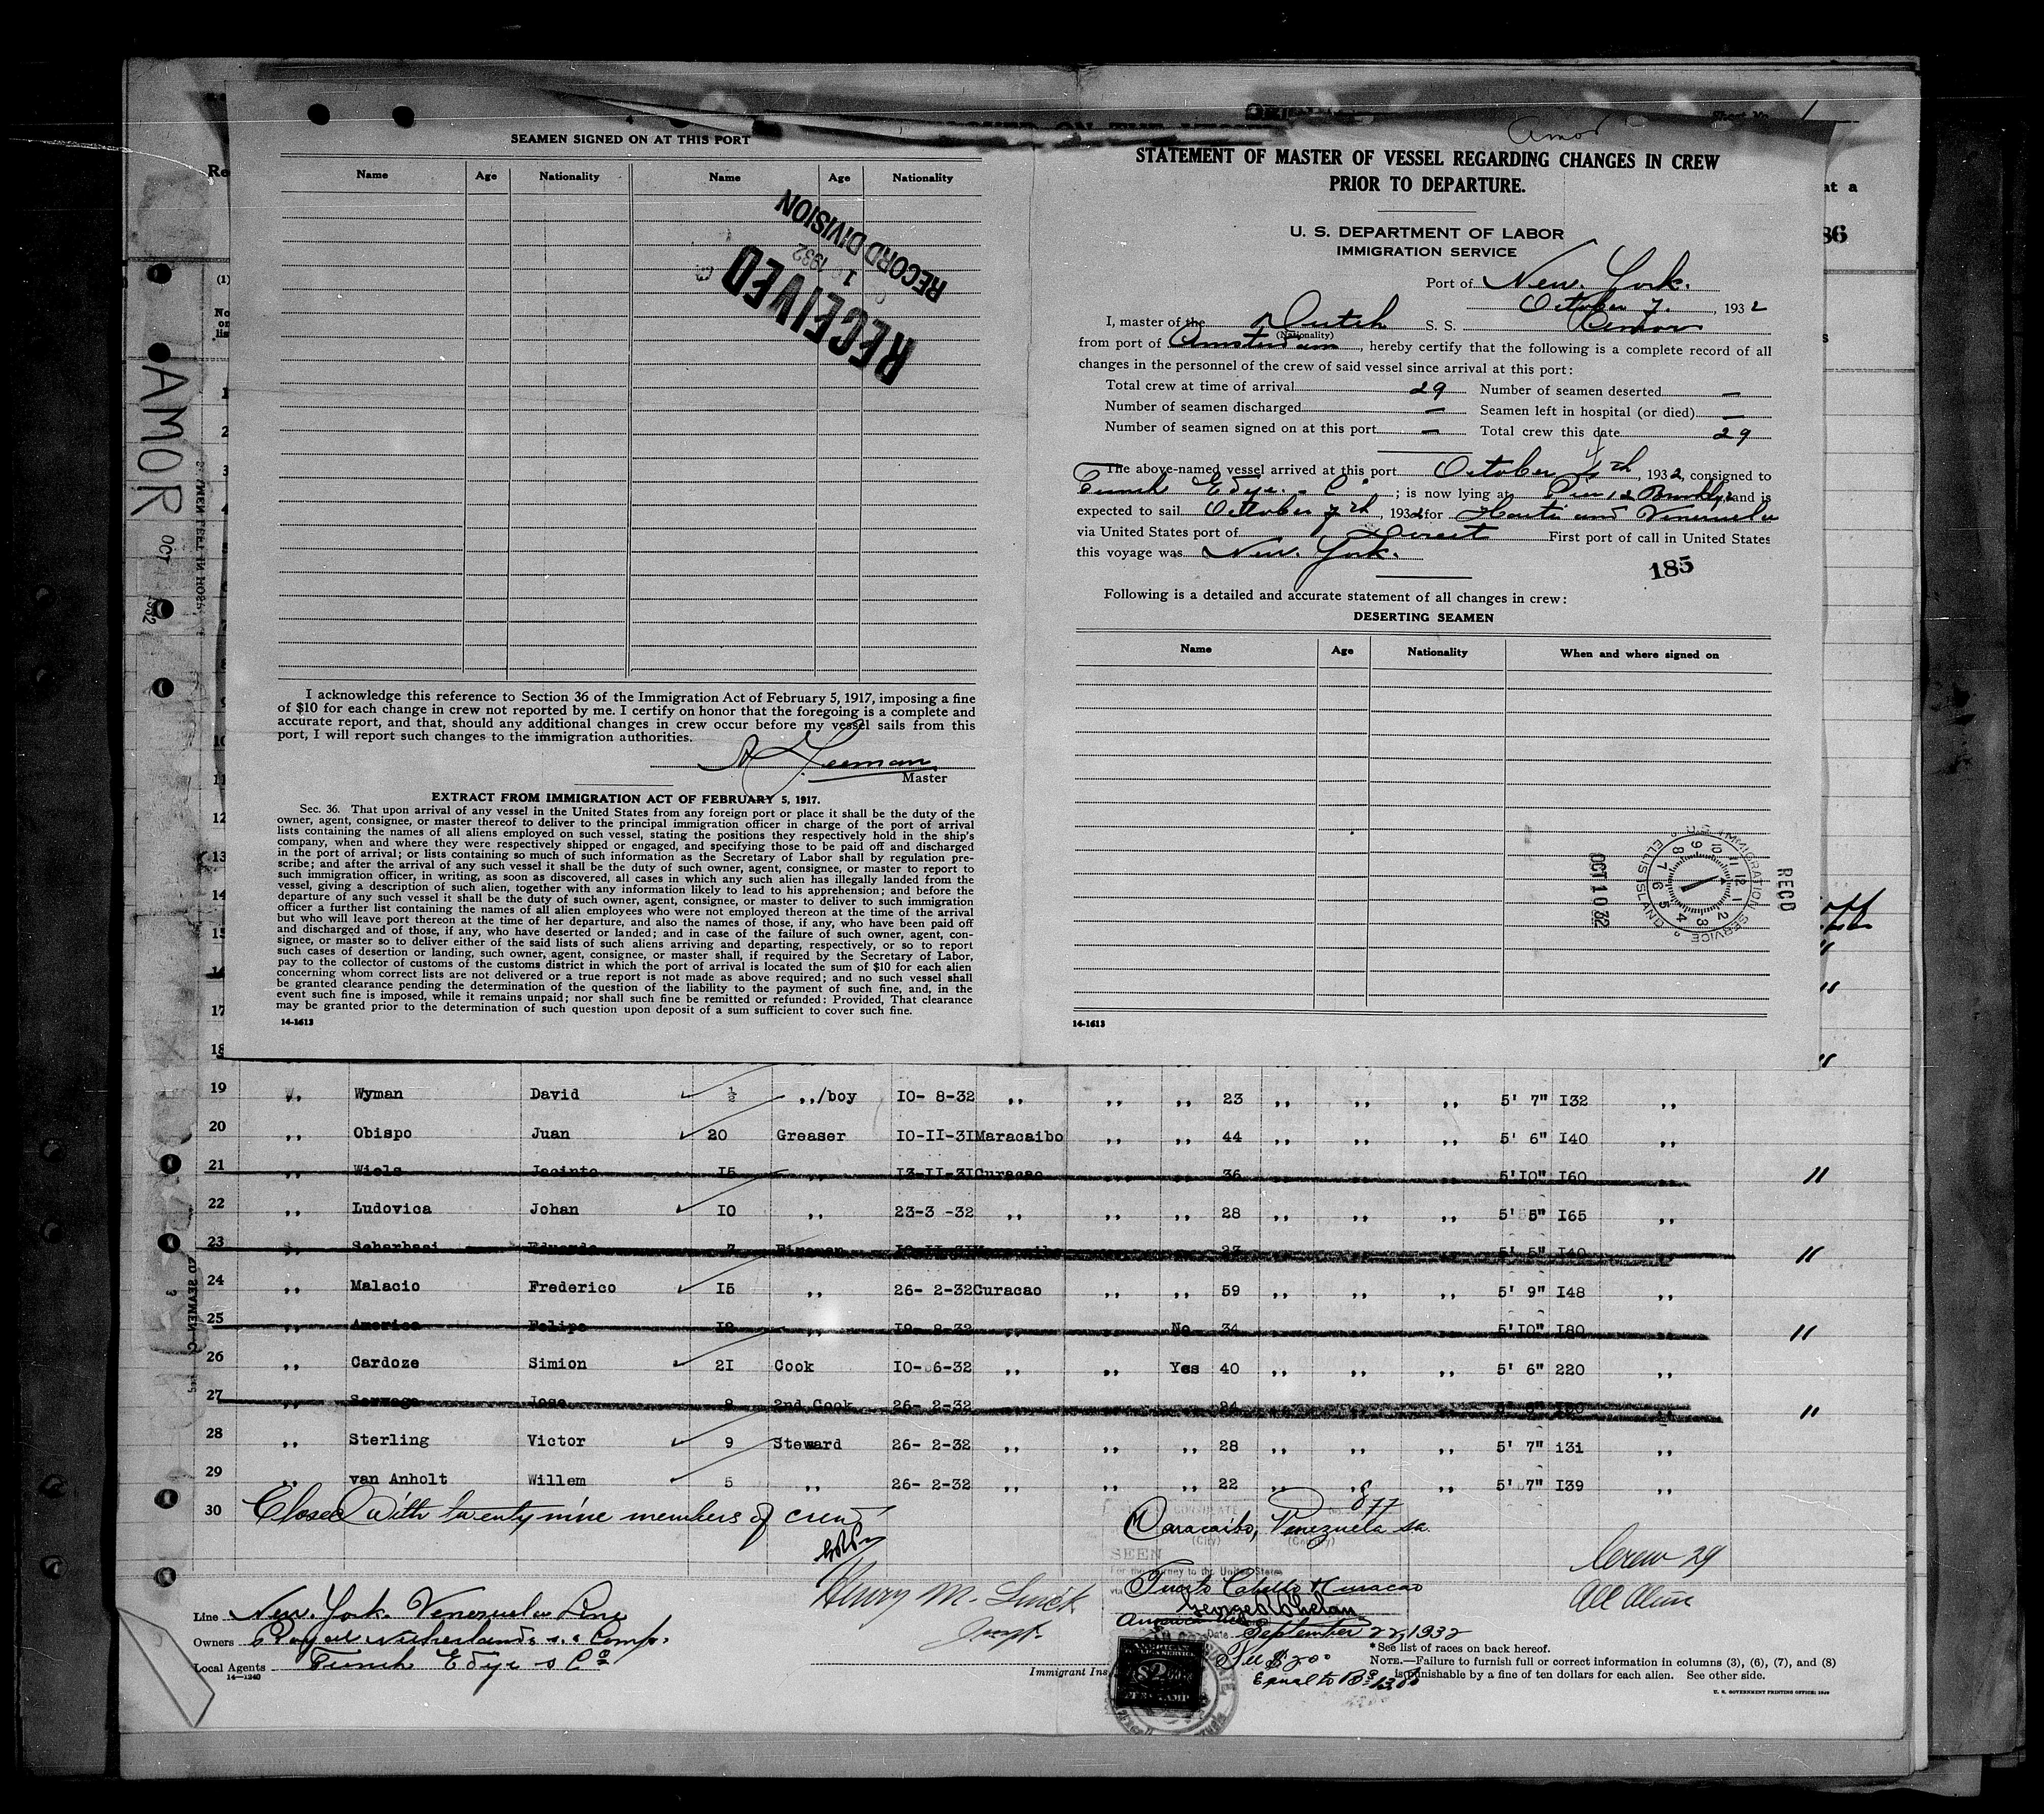 Sheet No. 1
Amor
SEAMEN SIGNED ON AT THIS PORT
Name Age Nationality Name Age Nationality
RECEIVED
1932
RECORD DIVISION
I acknowledge this reference to Section 36 of the Immigration Act of February 5, 1917, imposing a fine
of $10 for each change in crew not reported by me. I certify on honor that the foregoing is a complete and
accurate report, and that, should any additional changes in crew occur before my vessel sails from this
port, I will report such changes to the immigration authorities.
Master
EXTRACT FROM IMMIGRATION ACT OF FEBRUARY 5, 1917.
Sec. 36. That upon arrival of any vessel in the United States from any foreign port or place it shall be the duty of the
owner, agent, consignee, or master thereof to deliver to the principal immigration officer in charge of the port of arrival
lists containing the names of all aliens employed on such vessel, stating the positions they respectively hold in the ship's
company, when and where they were respectively shipped or engaged, and specifying those to be paid off and discharged
in the port of arrival; or lists containing so much of such information as the Secretary of Labor shall by regulation pre-
scribe; and after the arrival of any such vessel it shall be the duty of such owner, agent, consignee, or master to report to
such immigration officer, in writing, as soon as discovered, all cases in which any such alien has illegally landed from the
vessel, giving a description of such alien, together with any information likely to lead to his apprehension; and before the
departure of any such vessel it shall be the duty of such owner, agent, consignee, or master to deliver to such immigration
officer a further list containing the names of all alien employees who were not employed thereon at the time of the arrival
but who will leave port thereon at the time of her departure, and also the names of those, if any, who have been paid off
and discharged and of those, if any, who have deserted or landed; and in case of the failure of such owner, agent, con-
signee, or master so to deliver either of the said lists of such aliens arriving and departing, respectively, or so to report
such cases of desertion or landing, such owner, agent, consignee, or master shall, if required by the Secretary of Labor,
pay to the collector of customs of the customs district in which the port of arrival is located the sum of $10 for each alien
concerning whom correct lists are not delivered or a true report is not made as above required; and no such vessel shall
be granted clearance pending the determination of the question of the liability to the payment of such fine, and, in the
event such fine is imposed, while it remains unpaid; nor shall such fine be remitted or refunded: Provided, That clearance
may be granted prior to the determination of such question upon deposit of a sum sufficient to cover such fine.
14-1613
STATEMENT OF MASTER OF VESSEL REGARDING CHANGES IN CREW
PRIOR TO DEPARTURE.
U. S. DEPARTMENT OF LABOR
IMMIGRATION SERVICE
Port of New York.
October 7, 1932
I, master of the Dutch S. S. Amor
(Nationality)
from port of Amsterdam, hereby certify that the following is a complete record of all
changes in the personnel of the crew of said vessel since arrival at this port:
Total crew at time of arrival 29 Number of seamen deserted —
Number of seamen discharged — Seamen left in hospital (or died) —
Number of seamen signed on at this port — Total crew this date 29
The above-named vessel arrived at this port October 4th, 1932, consigned to
Funch Edye & Co; is now lying at Pier 12 Brooklyn and is
expected to sail October 7th, 1932 for Haiti and Venezuela
via United States port of Direct First port of call in United States
this voyage was New York.
185
Following is a detailed and accurate statement of all changes in crew:
DESERTING SEAMEN
Name Age Nationality When and where signed on
RECD
U.S. IMMIGRATION SERVICE ELLIS ISLAND
OCT 10 32
14-1613
AMOR OCT 1932
19 ,, Wyman David ½ ,,/boy 10- 8-32 ,, ,, ,, 23 ,, ,, ,, 5' 7" 132 ,,
20 ,, Obispo Juan 20 Greaser 10-II-31 Maracaibo ,, ,, 44 ,, ,, ,, 5' 6" I40 ,,
21 ,, Wiels Jacinto I5 ,, I3-II-3I Curacao ,, ,, 36 5'I0" I60 ,, "
22 ,, Ludovica Johan IO ,, 23-3 -32 ,, ,, ,, 28 ,, ,, ,, 5' 5" I65 ,,
23 Eduardo 7 Fireman 5' 5" I40 "
24 ,, Malacio Frederico I5 ,, 26- 2-32 Curacao ,, ,, 59 ,, ,, ,, 5' 9" I48 ,,
25 ,, America Felipe ,, ,, No 34 5'I0" I80 ,, "
26 ,, Cardoze Simion 2I Cook IO- 6-32 ,, ,, Yes 40 ,, ,, ,, 5' 6" 220 ,,
27 ,, Jose 8 2nd Cook 26- 2-32 24 "
28 ,, Sterling Victor 9 Steward 26- 2-32 ,, ,, ,, 28 ,, ,, ,, 5' 7" i3i ,,
29 ,, van Anholt Willem 5 ,, 26- 2-32 ,, 22 ,, ,, ,, 5' 7" I39 ,,
30 Closed with twenty nine members of crew
877
Maracaibo, Venezuela sa.
(City) (Country)
SEEN
For the journey to the United States
via Puerto Cabello & Curacao
Date September 22, 1932
Fee $2.00
Equal to Bs
Crew 29
All Alien
Henry M.
Line New York Venezuela Line
Owners Royal Netherlands s.s. Comp.
Local Agents Funch Edye & Co
14-1240
Immigrant Ins
* See list of races on back hereof.
NOTE.—Failure to furnish full or correct information in columns (3), (6), (7), and (8)
is punishable by a fine of ten dollars for each alien. See other side.